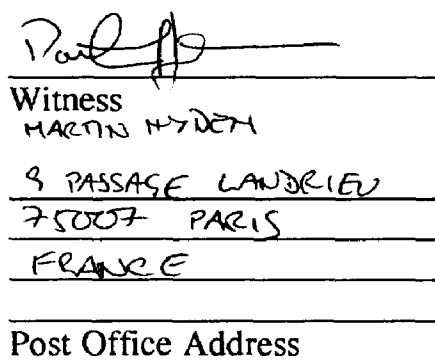 Witness
MARTIN HYDEN
9 PASSAGE LANDRIEU
75007 PARIS
FRANCE
Post Office Address